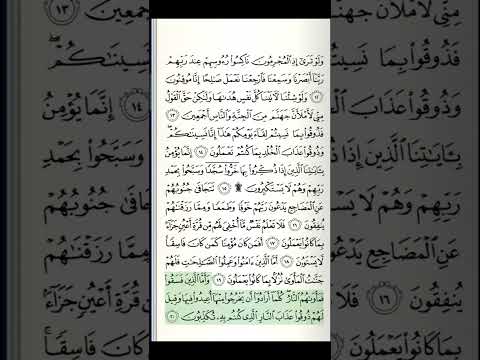 وَلَوْ تَرَىٰٓ إِذِ ٱلْمُجْرِمُونَ نَاكِسُوا۟ رُءُوسِهِمْ عِندَ رَبِّهِمْ
رَبَّنَآ أَبْصَرْنَا وَسَمِعْنَا فَٱرْجِعْنَا نَعْمَلْ صَٰلِحًا إِنَّا مُوقِنُونَ
١٢ وَلَوْ شِئْنَا لَءَاتَيْنَا كُلَّ نَفْسٍ هُدَىٰهَا وَلَٰكِنْ حَقَّ ٱلْقَوْلُ
مِنِّى لَأَمْلَأَنَّ جَهَنَّمَ مِنَ ٱلْجِنَّةِ وَٱلنَّاسِ أَجْمَعِينَ ١٣
فَذُوقُوا۟ بِمَا نَسِيتُمْ لِقَآءَ يَوْمِكُمْ هَٰذَآ إِنَّا نَسِينَٰكُمْ ۖ
وَذُوقُوا۟ عَذَابَ ٱلْخُلْدِ بِمَا كُنتُمْ تَعْمَلُونَ ١٤ إِنَّمَا يُؤْمِنُ
بِـَٔايَٰتِنَا ٱلَّذِينَ إِذَا ذُكِّرُوا۟ بِهَا خَرُّوا۟ سُجَّدًا وَسَبَّحُوا۟ بِحَمْدِ
رَبِّهِمْ وَهُمْ لَا يَسْتَكْبِرُونَ ۩ ١٥ تَتَجَافَىٰ جُنُوبُهُمْ
عَنِ ٱلْمَضَاجِعِ يَدْعُونَ رَبَّهُمْ خَوْفًا وَطَمَعًا وَمِمَّا رَزَقْنَٰهُمْ
يُنفِقُونَ ١٦ فَلَا تَعْلَمُ نَفْسٌ مَّآ أُخْفِىَ لَهُم مِّن قُرَّةِ أَعْيُنٍ جَزَآءًۢ
بِمَا كَانُوا۟ يَعْمَلُونَ ١٧ أَفَمَن كَانَ مُؤْمِنًا كَمَن كَانَ فَاسِقًا ۚ
لَّا يَسْتَوُۥنَ ١٨ أَمَّا ٱلَّذِينَ ءَامَنُوا۟ وَعَمِلُوا۟ ٱلصَّٰلِحَٰتِ فَلَهُمْ
جَنَّٰتُ ٱلْمَأْوَىٰ نُزُلًۢا بِمَا كَانُوا۟ يَعْمَلُونَ ١٩ وَأَمَّا ٱلَّذِينَ فَسَقُوا۟
فَمَأْوَىٰهُمُ ٱلنَّارُ ۖ كُلَّمَآ أَرَادُوٓا۟ أَن يَخْرُجُوا۟ مِنْهَآ أُعِيدُوا۟ فِيهَا وَقِيلَ
لَهُمْ ذُوقُوا۟ عَذَابَ ٱلنَّارِ ٱلَّذِى كُنتُم بِهِۦ تُكَذِّبُونَ ٢٠